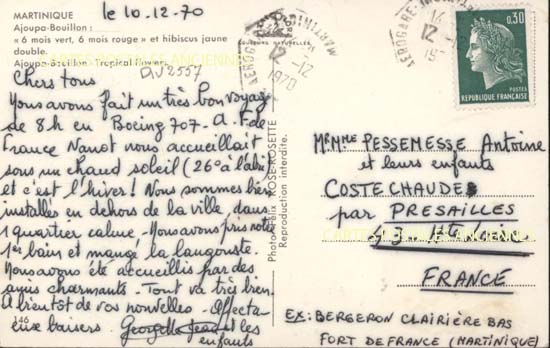 MARTINIQUE
Ajoupa-Bouillon :
« 6 mois vert, 6 mois rouge » et hibiscus jaune
double.
Ajoupa-Bouillon : Tropical flowers.
le 10.12.70
DIV2557
COULEURS NATURELLES
AEROGARE
MARTINIQUE
12-12
1970
12
0,30
POSTES
REPUBLIQUE FRANÇAISE
Chers tous
Nous avons fait un très bon voyage
de 8h en Boeing 707 - A.F de
France Nanot nous accueillait
sous un chaud soleil (26° à l'abri
et c'est l'hiver! Nous sommes bien
installés en dehors de la ville, dans
1 quartier calme. Nous avons pris notre
1er bain et mangé la langouste.
Nous avons été accueillis par des
amis charmants - Tout va très bien.
A bientôt de vos nouvelles - Affectu
eux baisers. Georgette Jean et les
enfants
146
Photo Félix ROSE-ROSETTE
Reproduction interdite.
CARTES POSTALES ANCIENNES
Mr Mme PESSEMESSE Antoine
et leurs enfants
COSTECHAUDE
par PRESAILLES
FRANCE
EX: BERGERON CLAIRIÈRE BAS
FORT DE FRANCE (MARTINIQUE)